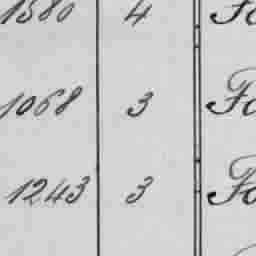 1580 4 Fo
1068 3 Fo
1243 3 Fo